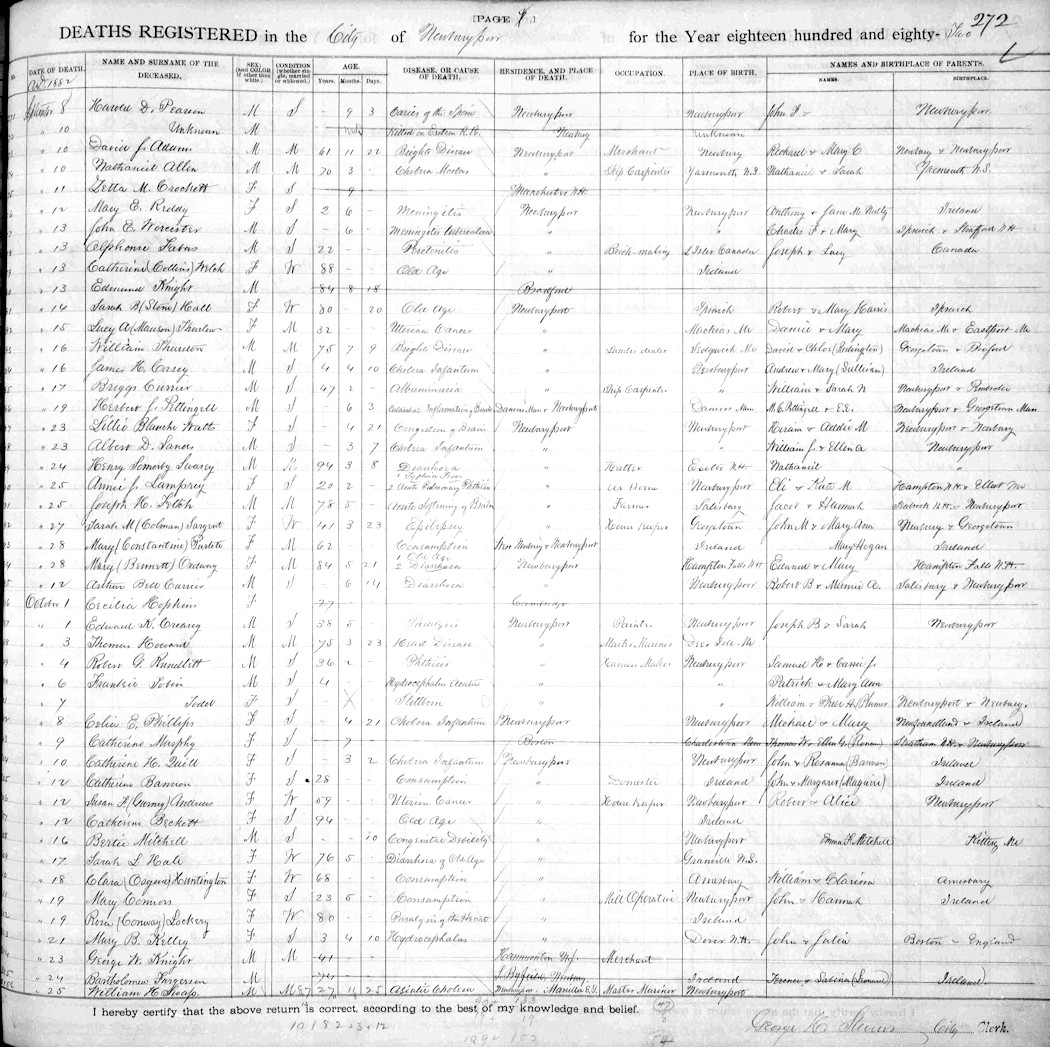 [PAGE 1] 272
DEATHS REGISTERED in the City of Newburyport for the Year eighteen hundred and eighty- Two
DATE OF DEATH. NAME AND SURNAME OF THE DECEASED. SEX; (and COLOR if other than white.) CONDITION (whether single, married or widowed.) AGE. Years. Months. Days. DISEASE, OR CAUSE OF DEATH. RESIDENCE, AND PLACE OF DEATH. OCCUPATION. PLACE OF BIRTH. NAMES AND BIRTHPLACE OF PARENTS. NAMES. BIRTHPLACE.
1882
8 Harvey D. Pearson M S - 9 3 Caries of the Spine Newburyport Newburyport John F Newburyport
" 10 Unknown M Killed on Eastern R.R. Newbury Unknown
" 10 David J. Adams M M 61 11 22 Brights Disease Newburyport Merchant Newbury Richard & Mary C Newbury & Newburyport
" 10 Nathaniel Allen M M 70 3 - Cholera Morbus " Ship Carpenter Yarmouth N.S. Nathaniel & Sarah Yarmouth N.S.
" 11 Letta M. Crockett F S - 9 Manchester N.H.
" 12 Mary E. Reddy F S 2 6 - Meningitis Newburyport Newburyport Anthony & Jane Ireland
" 13 John E. Worcester M S - 6 - Meningitis tuberculosa " " Charles F & Mary Ipswich & Strafford N.H.
" 13 Alphonse M S 22 - - Peritonitis " Brick-making Canada Joseph & Lucy Canada
" 13 Catherine (Collins) Welch F W 88 - - Old Age " Ireland
" 13 Edmund Knight M 84 8 18 Bradford
" 14 Sarah B (Stone) Hall F W 80 - 20 Old Age Newburyport Ipswich Robert & Mary Harris Ipswich
" 15 Lucy A (Manson) Thurlow F M 32 Uterine Cancer " Machias Me & Mary Machias Me & Eastport Me
" 16 William Thurston M M 75 7 9 Brights Disease " Sedgwick Me David & Chloe (Redington) Georgetown & Boxford
" 16 James H. Carey M S 4 4 10 Cholera Infantum " Newburyport Andrew & Mary (Sullivan) Ireland
" 17 Briggs Currier M S 47 2 - Albuminuria " Ship Carpenter " William & Sarah N Newburyport & Pembroke
" 19 Herbert J. Pettingell M S - 6 3 Danvers Mass & Newburyport Danvers Mass M.C. Pettingell & E.E. Newburyport & Georgetown Mass
" 23 Lillie Blanche Watts F S - 4 21 Congestion of Brain Newburyport Newburyport Hiram & Addie M Newburyport & Newbury
" 23 Albert D. M S - 3 7 Cholera Infantum " " William J. & Ellen A Newburyport
" 24 Henry Somerby Swasey M 94 3 8 Diarrhoea " Hatter Exeter N.H. Nathaniel "
" 25 Annie J. Lamprey F S 20 2 - 1 Typhoid Fever 2 Acute Pulmonary Phthisis " At Home Newburyport Eli & Kate M Hampton N.H. & Elliot Me
" 25 Joseph H. M M 78 5 - Acute Softening of Brain " Farmer Salisbury Jacob & Hannah & Newburyport
" 27 Sarah M (Colman) Sargent F W 41 3 23 Epilepsy " House Keeper Georgetown John M & Mary Ann Newbury & Georgetown
" 28 Mary (Constantine) F M 62 Consumption West Newbury & Newburyport Ireland Mary Hogan Ireland
" 28 Mary (Bennett) Ordway F M 84 5 21 1 Old Age 2 Diarrhoea Newburyport Hampton Falls N.H. Edward & Mary Hampton Falls N.H.
" 12 Arthur Bell Currier M S - 6 14 Diarrhoea Newburyport Robert B & Minnie A. Salisbury & Newburyport
October 1 Cecilia Hopkins F 27 Cambridge
" 1 Edward K. Creasey M S 38 5 Paralysis Newburyport Painter Newburyport Joseph B & Sarah Newburyport
" 3 Thomas Howard M M 75 3 23 Heart Disease " Master Mariner Deer Isle Me
" 4 Robert G. Rundlett M S 36 2 - Phthisis " Newburyport Samuel H & Carrie J.
" 6 Frankie Tobin M S 4 Hydrocephalus Acutus " Patrick & Mary Ann
" 7 F S Stillborn " William & Phebe H (Plumer Newburyport & Newbury
" 8 Celia E. Phillips F S - 4 21 Cholera Infantum Newburyport Newburyport Michael & Mary Newfoundland & Ireland
" 9 Catherine Murphy F S - 7 Boston Charlestown Mass Thomas W & Ellen G (Ronan) Stratham N.H. & Newburyport
" 10 Catherine H. Quill F S - 3 2 Cholera Infantum Newburyport Newburyport John & Rosanna (Bannon) Ireland
" 12 Catherine Bannon F S 28 - Consumption " Domestic Ireland John & Margaret (Maguire) Ireland
" 12 Susan H (Gurney) Andrews F W 59 - Uterine Cancer " House Keeper Newburyport Robert & Alice Newburyport
" 12 Catherine Beckett F S 94 - Old Age " Ireland
" 16 Bertie Mitchell M S 10 Congenital Debility " Newburyport Emma F. Mitchell Kittery Me
" 17 Sarah L Hale F W 76 5 Diarrhoea of Old Age " Granville N.S.
" 18 Clara (Osgood) Huntington F W 68 Consumption " Amesbury William & Clarissa Amesbury
" 19 Mary Connors F S 23 5 - Consumption " Mill Operative Newburyport John & Hannah Ireland
" 19 Rose (Conway) Lockery F W 80 Paralysis of the Heart " Ireland
" 21 Mary B. Kelley F S 3 4 10 Hydrocephalus " Dover N.H. John & Julia Boston - England
" 23 George W. Knight M 41 Hammonton N.J. Merchant
" 24 Bartholomew Fargerson M 74 Newbury Ireland & Sabina (Leonard) Ireland
" 25 William H. Swasey M M 27 11 25 Asiatic Cholera Newburyport Manilla Master Mariner Newburyport
I hereby certify that the above return is correct, according to the best of my knowledge and belief.
George H. Stevens City Clerk.